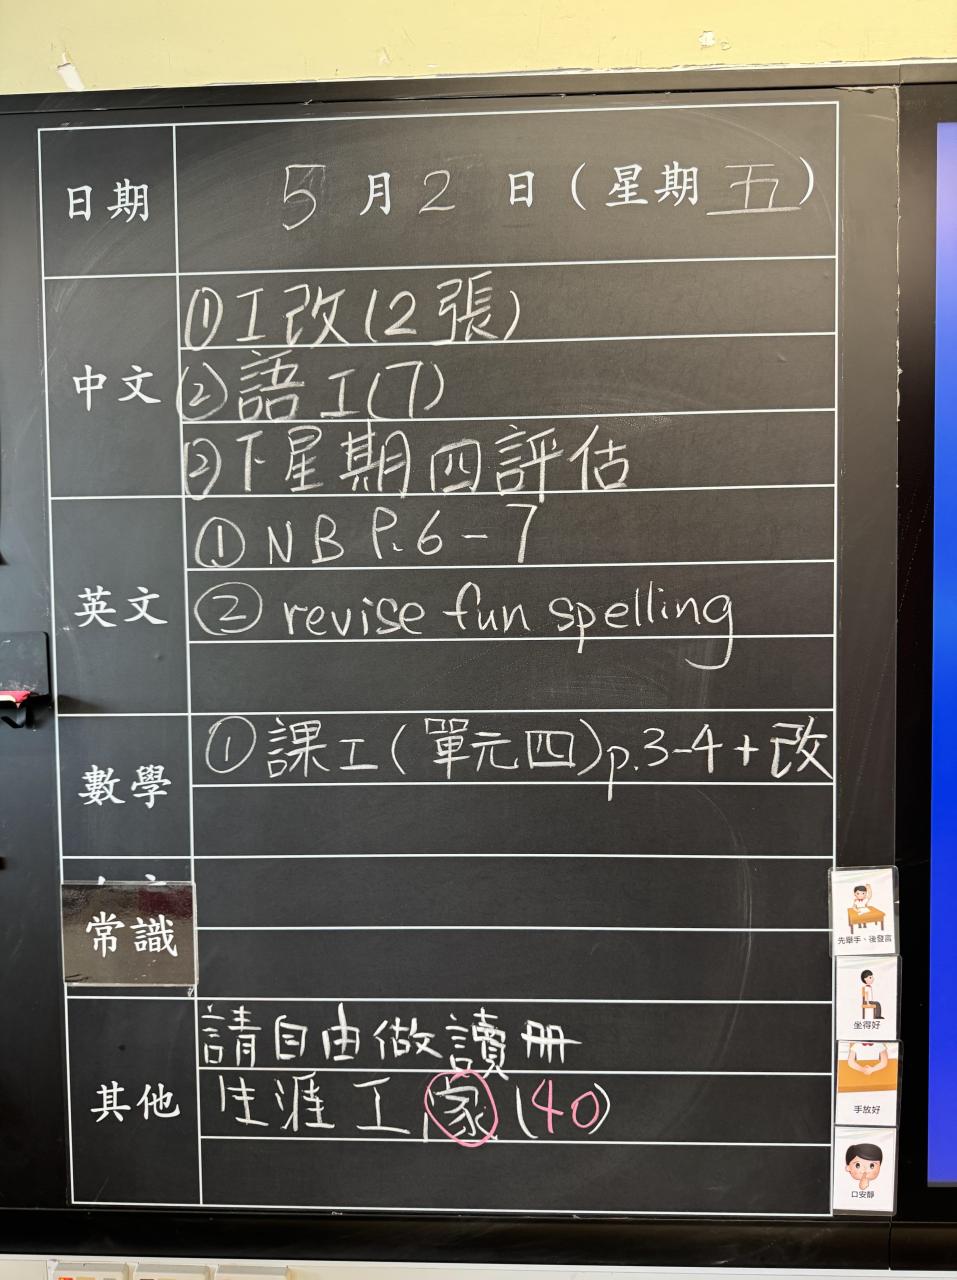 日期 5月2日(星期五)
中文
①工改(2張)
②語工(7)
②下星期四評估
英文
①NB P.6-7
②revise fun spelling
數學
①課工(單元四)p.3-4+改
常識
其他
請自由做讀冊
生涯工家(40)
先舉手、後發言
坐得好
手放好
口安靜